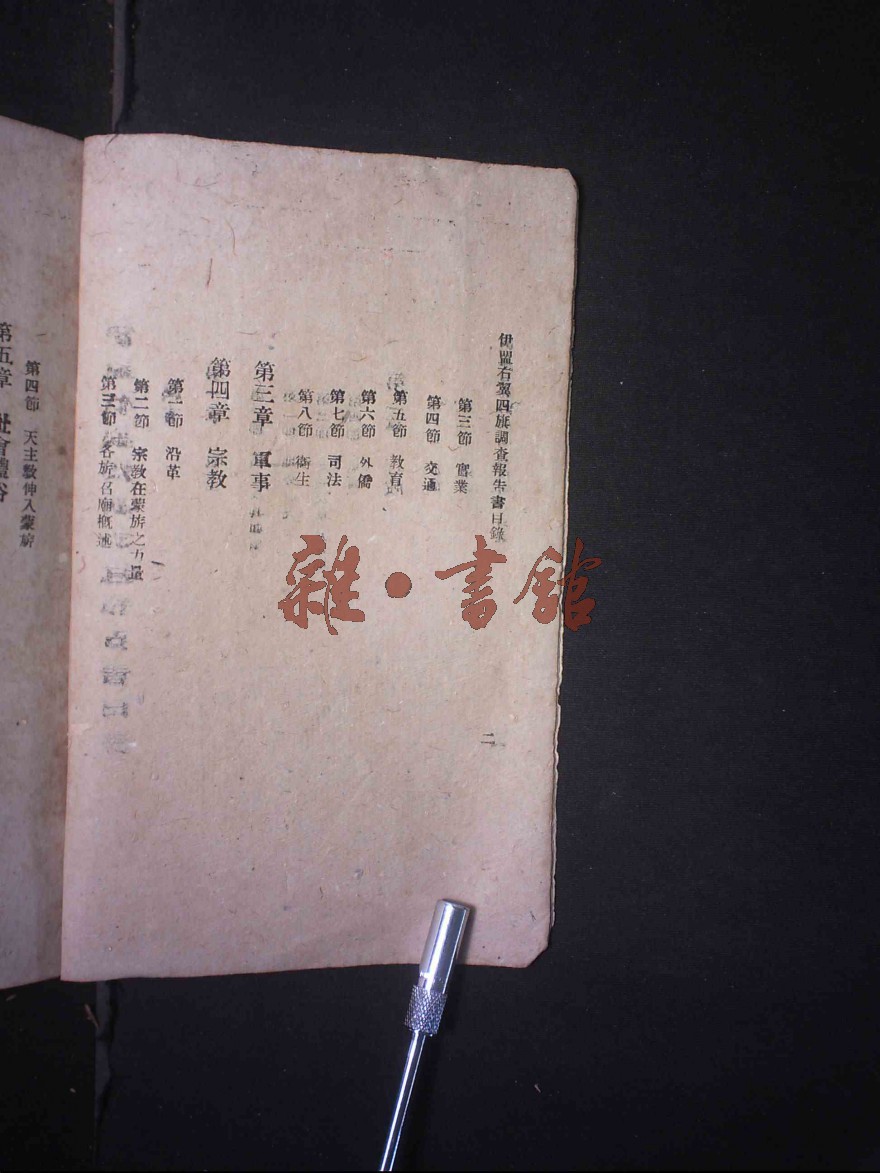 伊盟右翼四旗調查報告書目錄
第三節 實業
第四節 交通
第五節 教育
第六節 外僑
第七節 司法
第八節 衛生
第三章 軍事
第四章 宗教
第一節 沿革
第二節 宗教在蒙旗之力量
第三節 各旗召廟概述
二
第四節 天主教伸入蒙旗
第五章 社會禮俗
雜·書館